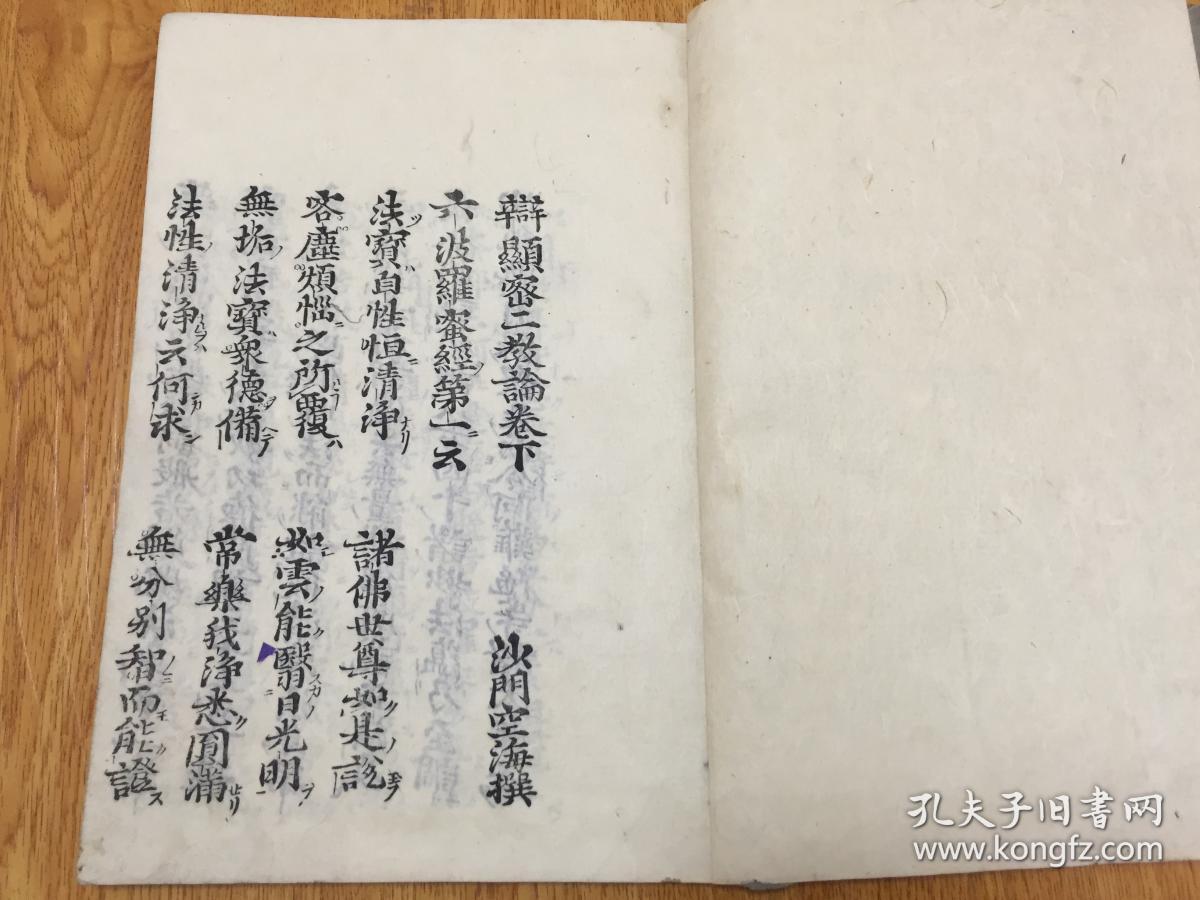 辯顯密二教論卷下
沙門空海撰
六波羅蜜經第一云
法寶自性恒清淨 諸佛世尊如是說
客塵煩惱之所覆 如雲能翳日光明
無垢法寶衆德備 常樂我淨悉圓滿
法性清淨云何求 無分別智而能證
孔夫子旧书网
www.kongfz.com